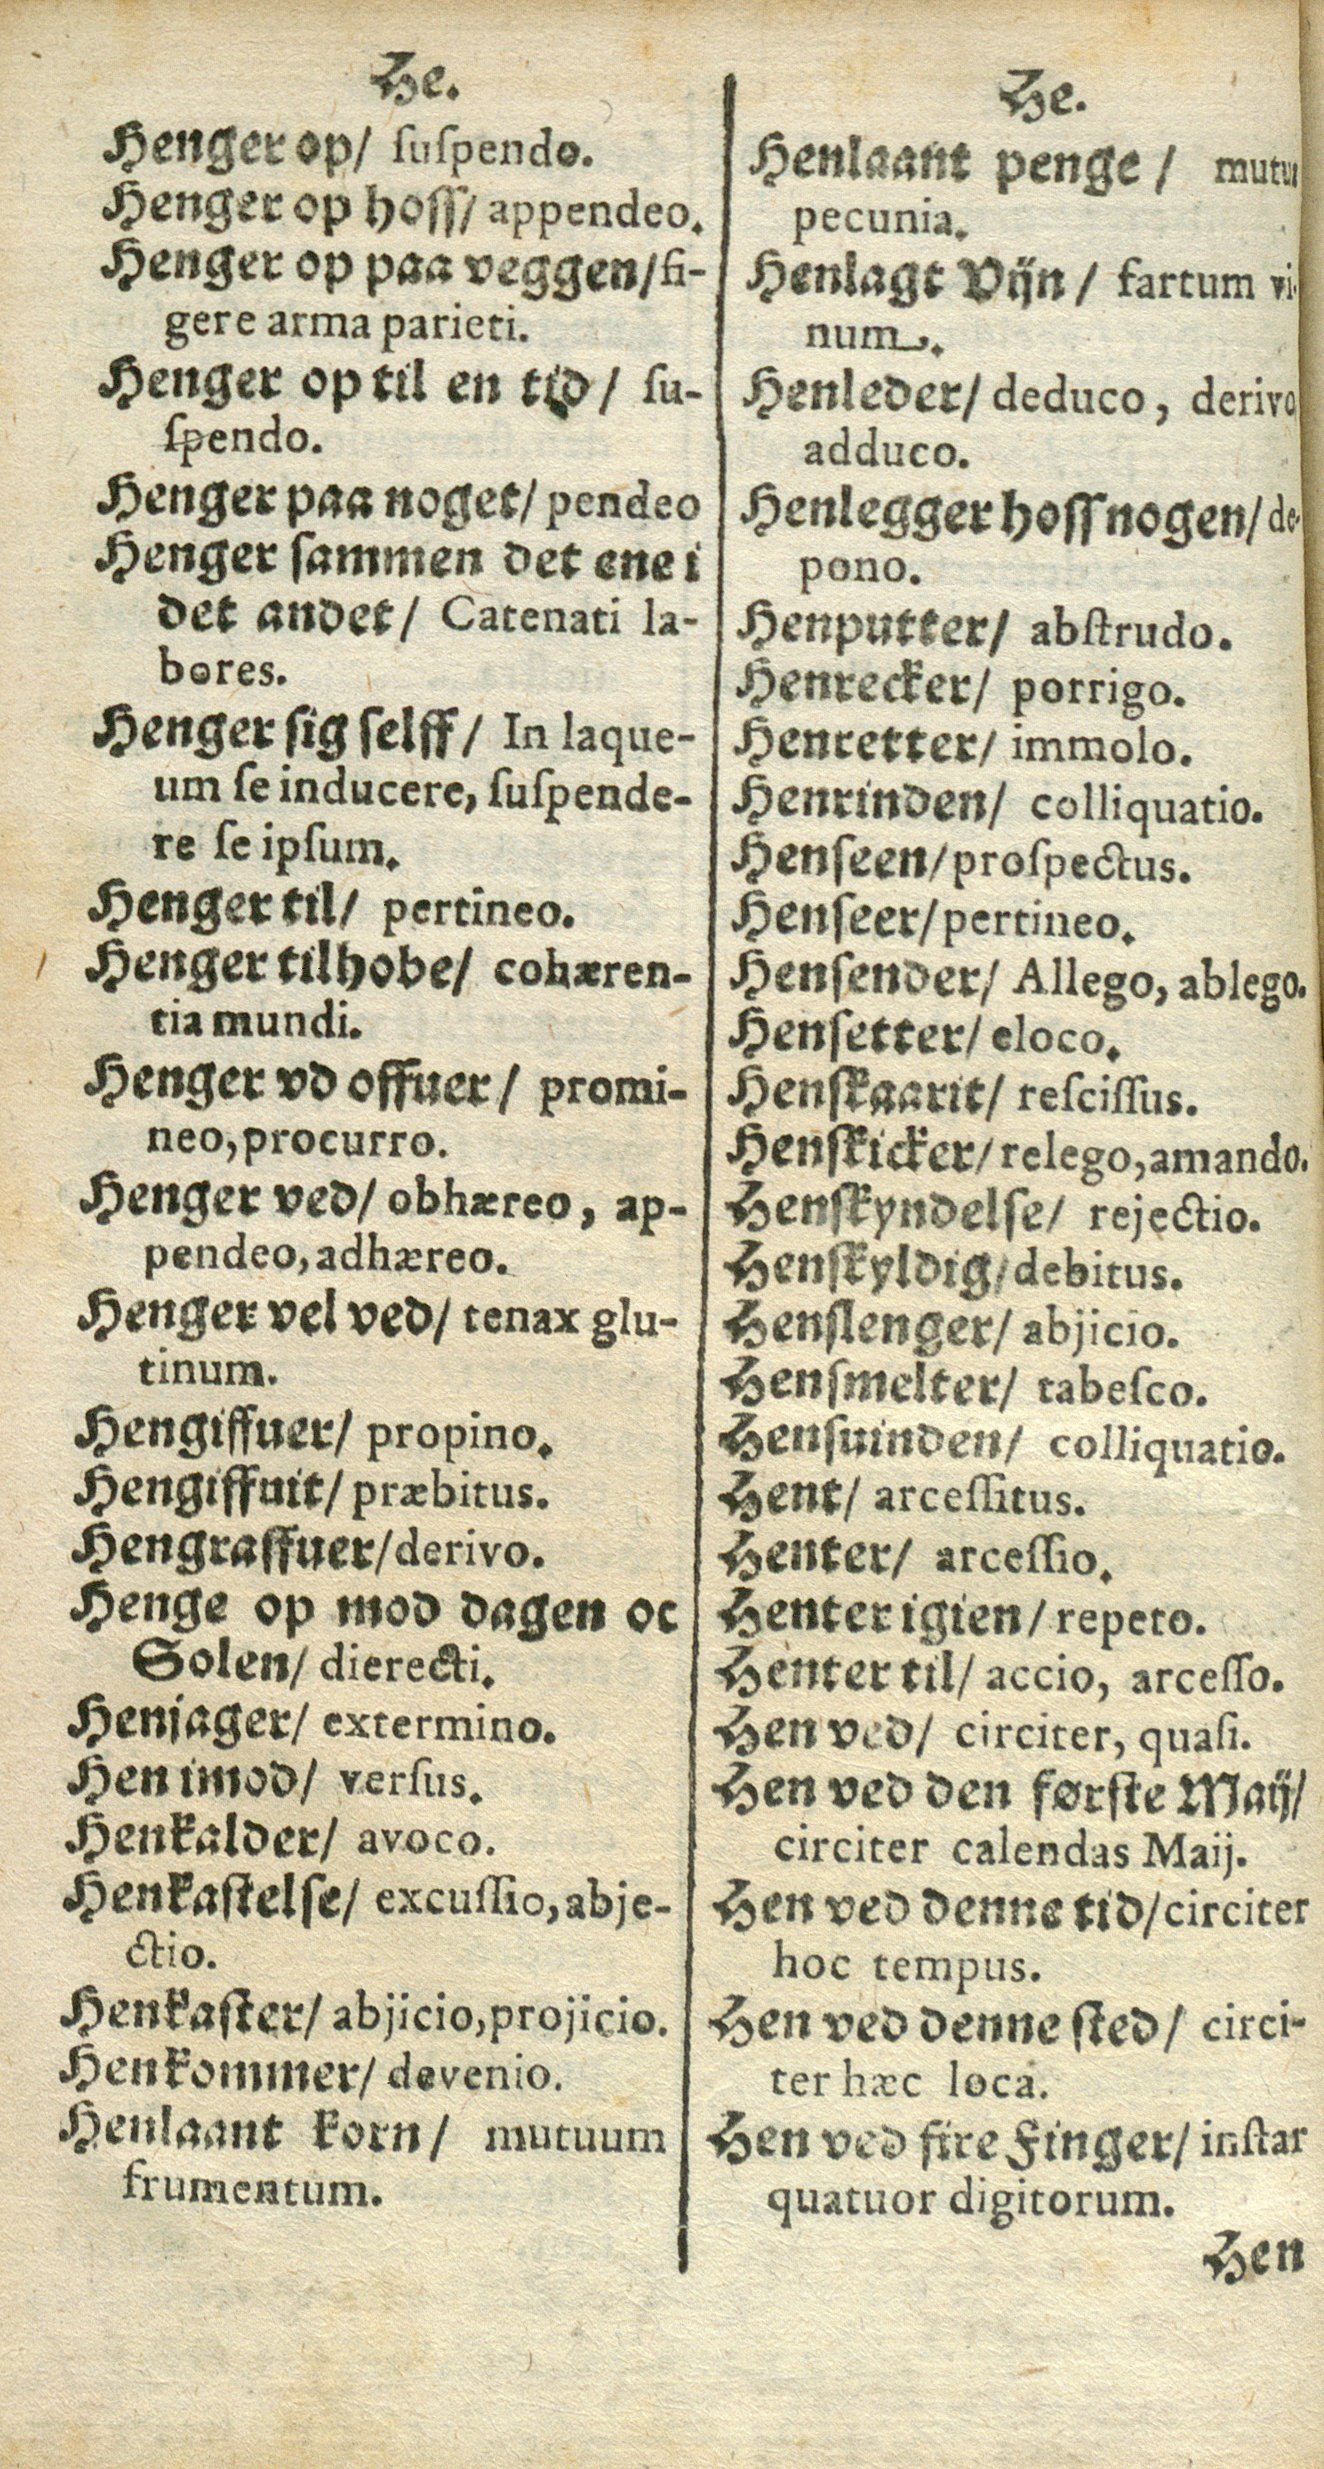 He.
Henger op/ ſuſpendo.
Henger op hoſſ/ appendeo.
Henger op paa veggen/ fi-
gere arma parieti.
Henger op til en tid/ ſu-
ſpendo.
Henger paa noget/ pendeo
Henger ſammen det ene i
det andet/ Catenati la-
bores.
Henger ſig ſelff/ In laque-
um ſe inducere, ſuſpende-
re ſe ipſum.
Henger til/ pertineo.
Henger tilhobe/ cohæren-
tia mundi.
Henger vd offuer/ promi-
neo, procurro.
Henger ved/ obhæreo, ap-
pendeo, adhæreo.
Henger vel ved/ tenax glu-
tinum.
Hengiffuer/ propino.
Hengiffuit/ præbitus.
Hengraffuer/ derivo.
Henge op mod dagen oc
Solen/ dierecti.
Henjager/ extermino.
Hen imod/ verſus.
Henkalder/ avoco.
Henkaſtelſe/ excuſſio, abje-
ctio.
Henkaſter/ abjicio, projicio.
Henkommer/ devenio.
Henlaant korn/ mutuum
frumentum.
He.
Henlaant penge/ mutua
pecunia.
Henlagt Vijn/ fartum vi-
num.
Henleder/ deduco, derivo
adduco.
Henlegger hoſſ nogen/ de-
pono.
Henputter/ abſtrudo.
Henrecker/ porrigo.
Henretter/ immolo.
Henrinden/ colliquatio.
Henſeen/ proſpectus.
Henſeer/ pertineo.
Henſender/ Allego, ablego.
Henſetter/ eloco.
Henſkaarit/ reſciſſus.
Henſkicker/ relego, amando.
Henſkyndelſe/ rejectio.
Henſkyldig/ debitus.
Henſlenger/ abjicio.
Henſmelter/ tabeſco.
Henſuinden/ colliquatio.
Hent/ arceſſitus.
Henter/ arceſſio.
Henter igien/ repeto.
Henter til/ accio, arceſſo.
Hen ved/ circiter, quaſi.
Hen ved den førſte Maij/
circiter calendas Maij.
Hen ved denne tid/ circiter
hoc tempus.
Hen ved denne ſted/ circi-
ter hæc loca.
Hen ved fire Finger/ inſtar
quatuor digitorum.
Hen